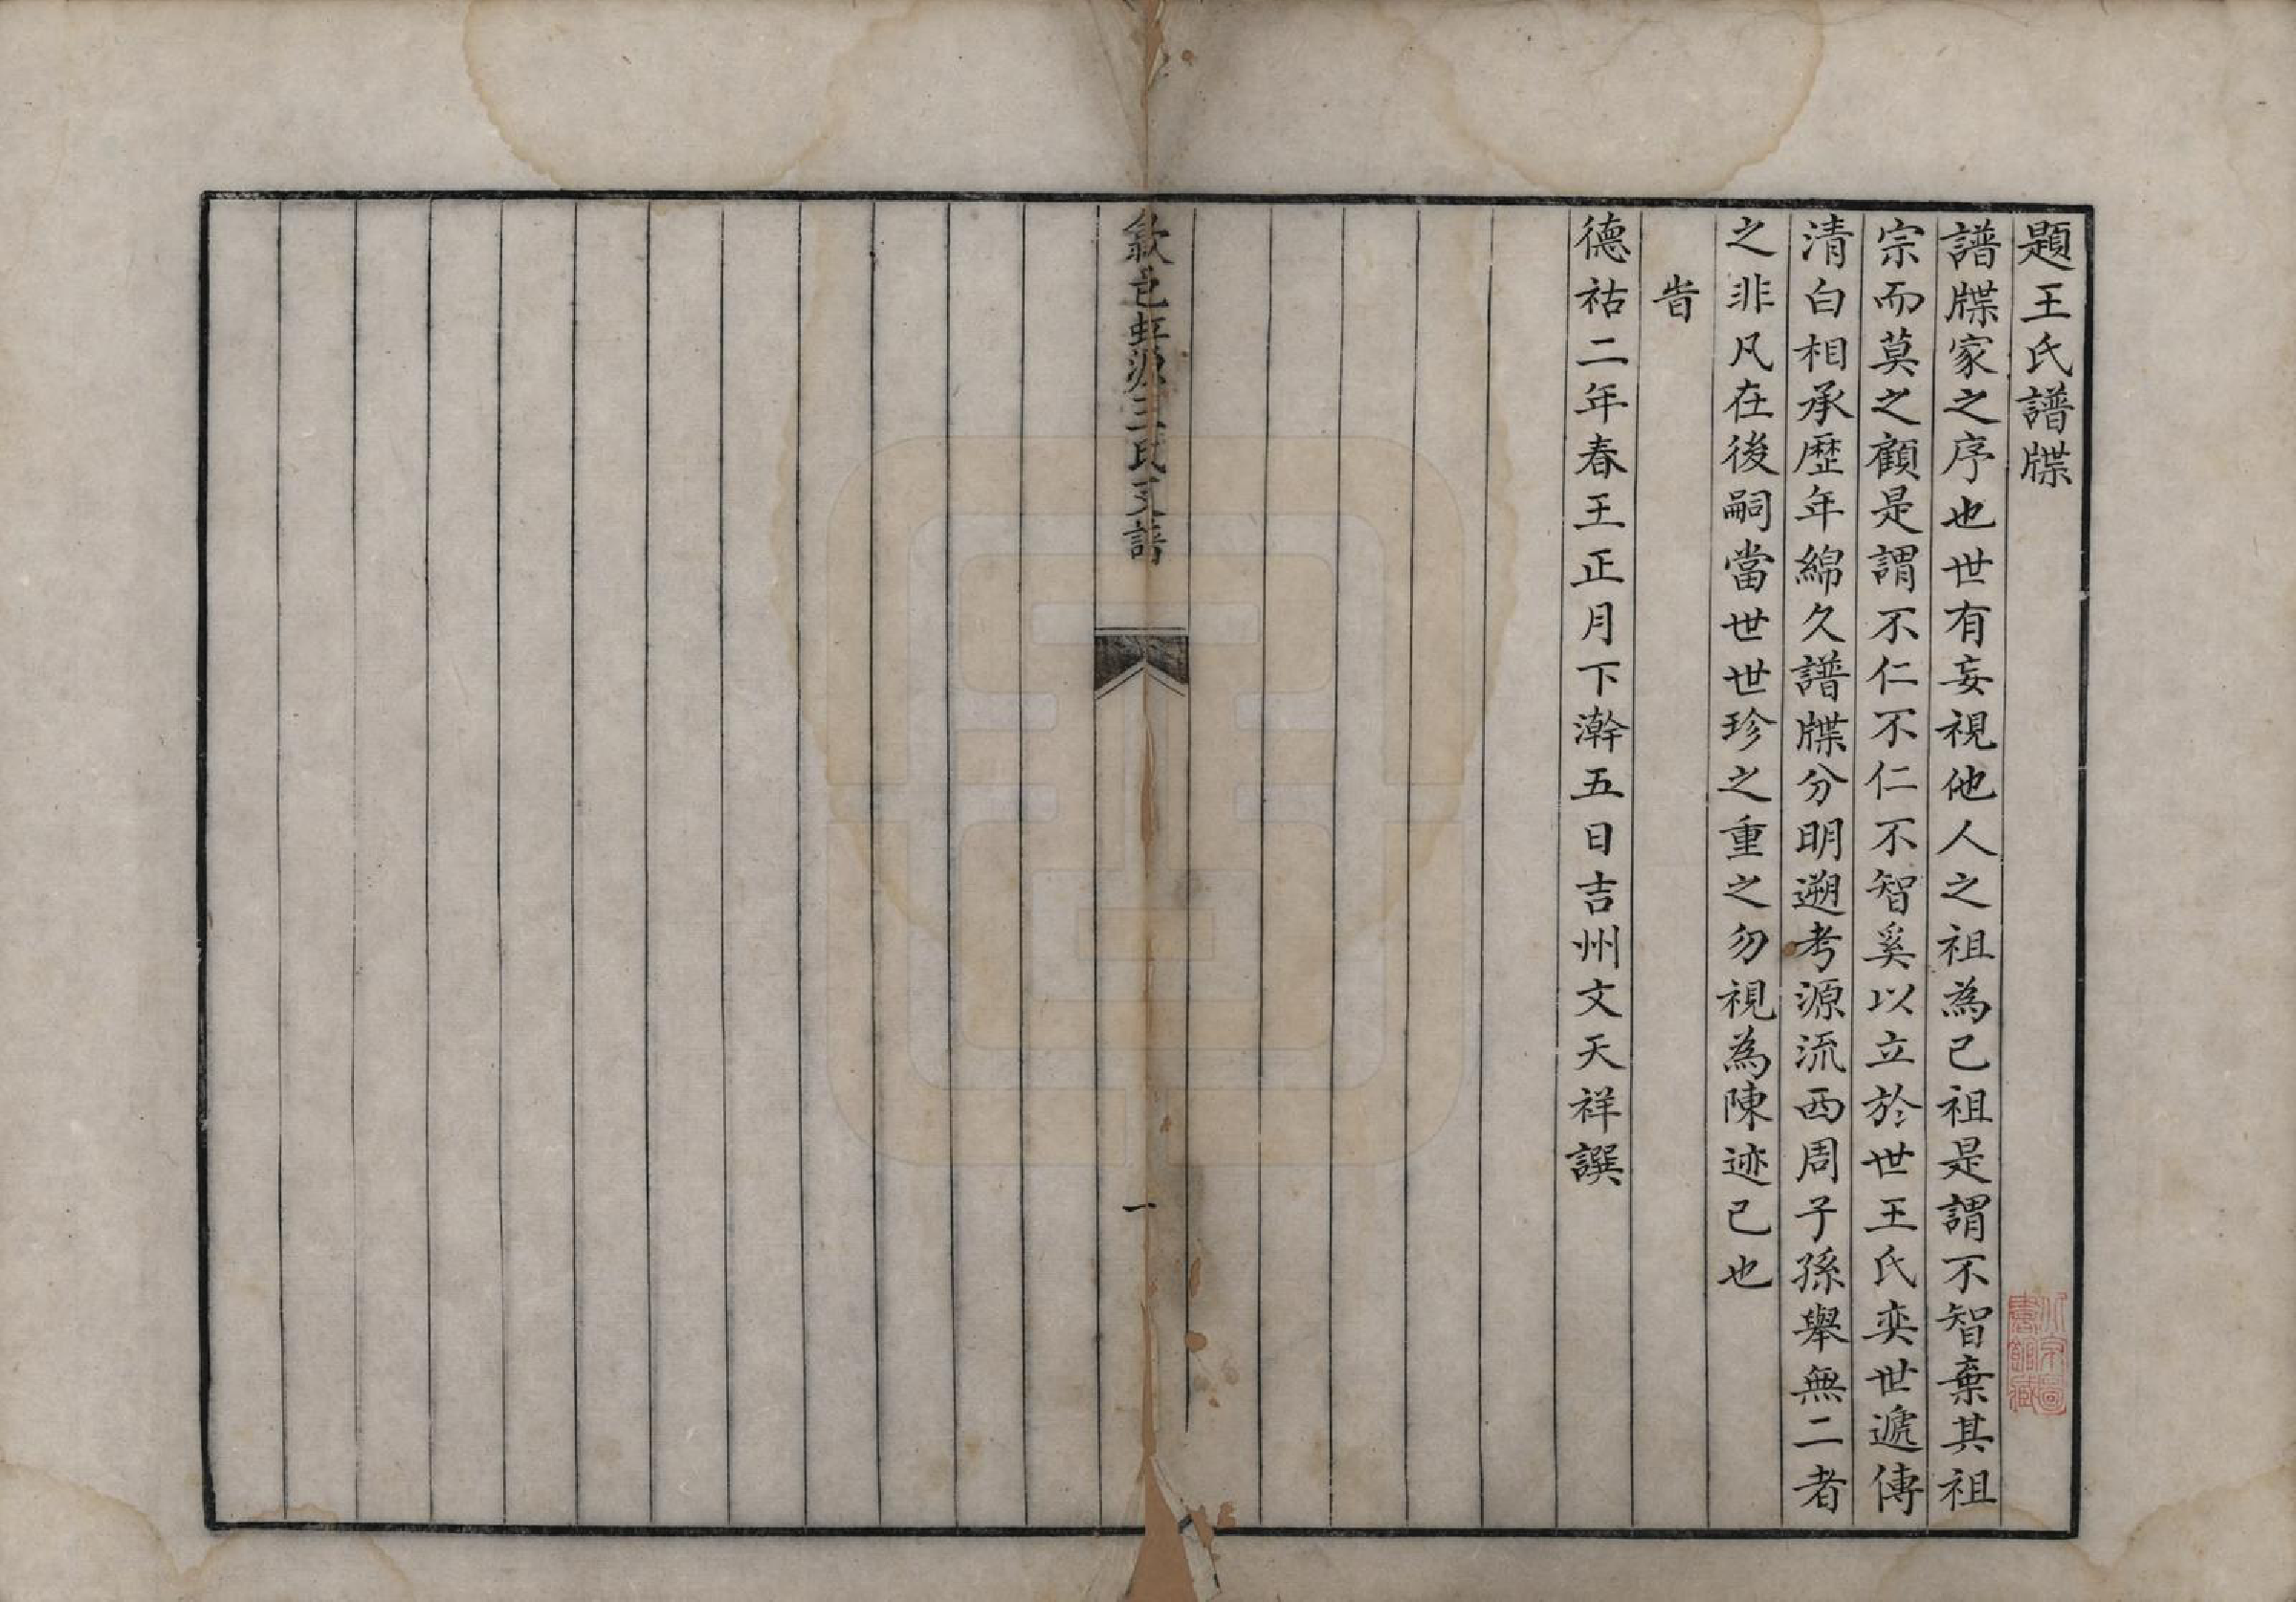 題王氏譜牒
譜牒家之序也世有妄視他人之祖為己祖是謂不智棄其祖
宗而莫之顧是謂不仁不仁不智奚以立於世王氏奕世遞傳
清白相承歷年綿久譜牒分明遡考源流西周子孫舉無二者
之非凡在後嗣當世世珍之重之勿視為陳迹已也
旹
德祐二年春王正月下澣五日吉州文天祥譔
歙邑虹源王氏支譜
一